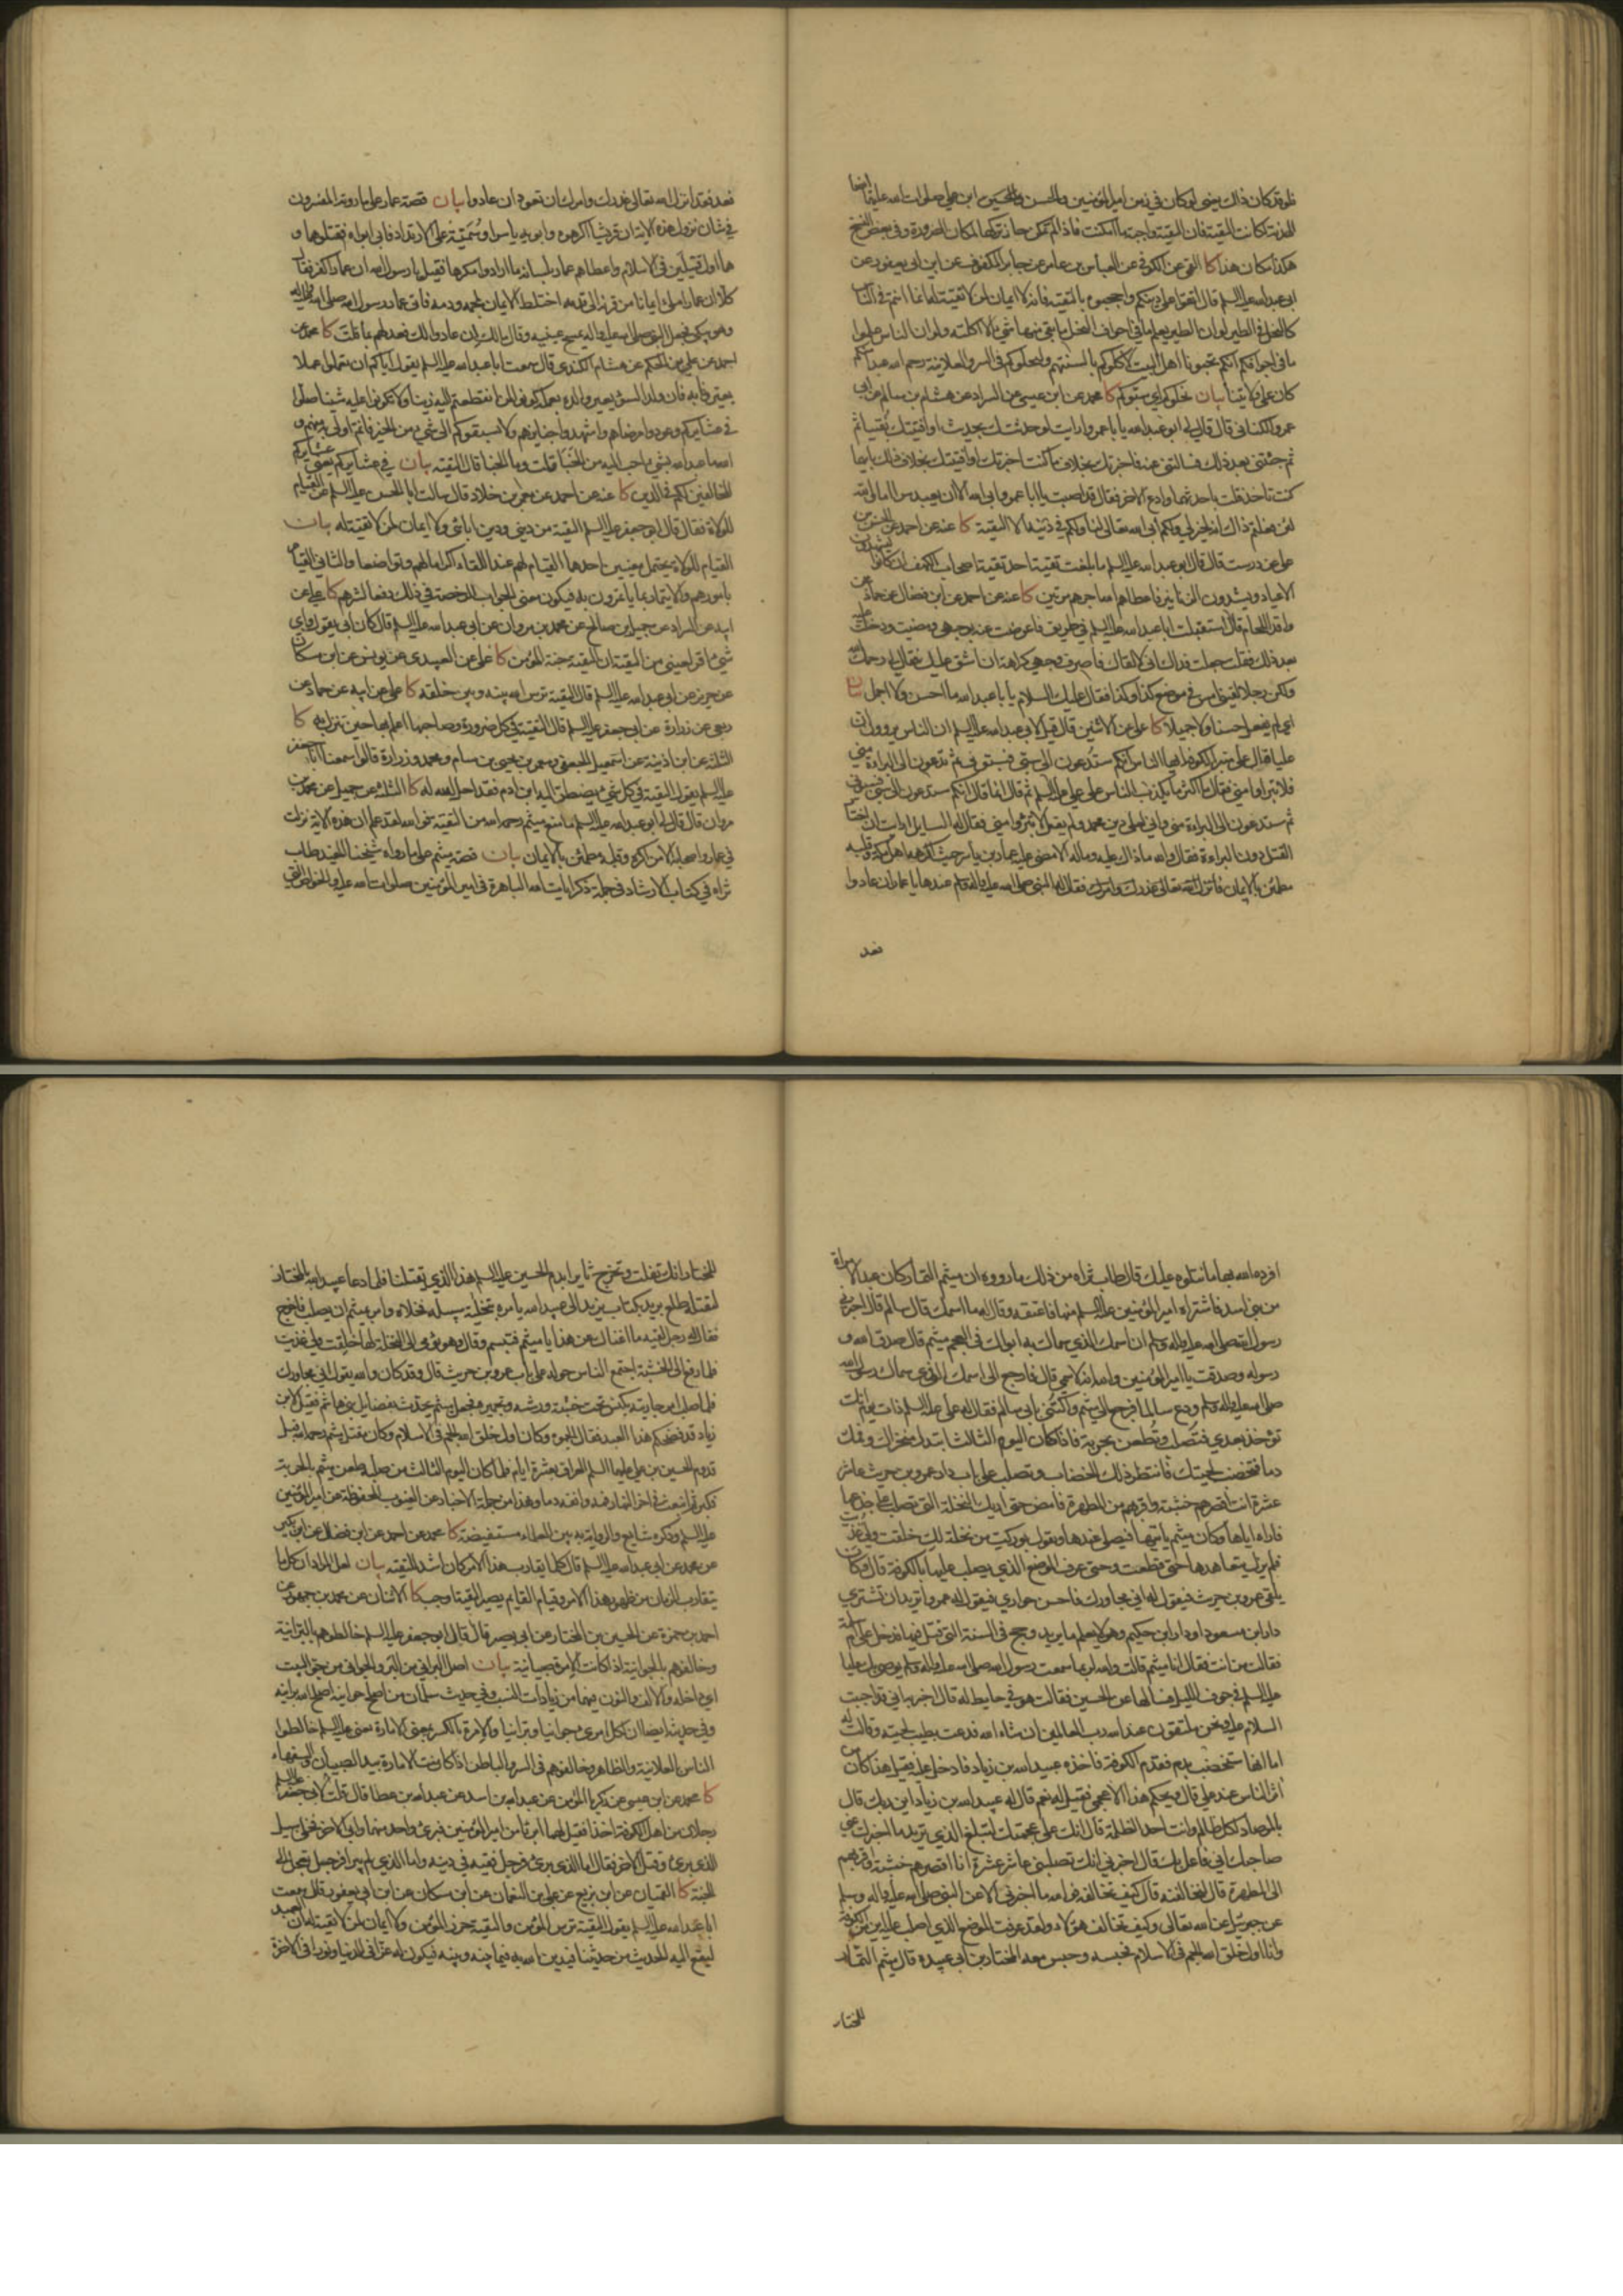 فلو قد كان ذلك يعني لو كان في زمن امير المؤمنين والحسن والحسين ابن علي صلوات الله عليهم ايضا
الهدنة لكانت التقية فان التقية واجبة ما امكنت فاذا لم تمكن جاز تركها لمكان الضرورة وفي بعض النسخ
هكذا مكان هذا كا القمي عن الكوفي عن العباس بن عامر عن جابر المكفوف عن ابن ابي يعفور عن
ابي عبد الله عليه السلم قال اتقوا على دينكم واحجبوه بالتقية فانه لا ايمان لمن لا تقية له انما انتم في الناس
كالنحل في الطير لو ان الطير يعلم ما في اجواف النحل ما بقي منها شئ الا اكلته ولو ان الناس علموا
ما في اجوافكم انكم تحبونا اهل البيت لاكلوكم بالسنتهم ولنحلوكم في السر والعلانية رحم الله عبدا منكم
كان على ولايتنا بيان نحلوكم اي سبوكم كا محمد عن ابن عيسى عن السراد عن هشام بن سالم عن ابي
عمرو الكناني قال قال لي ابو عبد الله يا با عمرو ارايت لو حدثتك بحديث او افتيتك بفتيا ثم
ثم جئتني بعد ذلك فسالتني عنه فاخبرتك بخلاف ما كنت اخبرتك او افتيتك بخلاف ذلك بايهما
كنت تاخذ قلت باحدثهما وادع الاخر فقال قد اصبت يا با عمرو وابى الله الا ان يعبد سرا اما والله
لئن فعلتم ذلك انه لخير لي ولكم ابى الله تعالى لنا ولكم في دينه الا التقية كا عنه عن احمد عن الحسن بن
علي عن درست قال قال ابو عبد الله عليه السلم ما بلغت تقية احد تقية اصحاب الكهف ان كانوا ليشهدون
الاعياد ويشدون الزنانير فاعطاهم الله اجرهم مرتين كا عنه عن احمد عن ابن فضال عن حماد عن
واقد اللحام قال استقبلت ابا عبد الله عليه السلم في طريق فاعرضت عنه بوجهي ومضيت ودخلت عليه
بعد ذلك فقلت جعلت فداك اني لالقاك فاصرف وجهي كراهة ان اشق عليك فقال لي رحمك الله
ولكن رجلا لقيني امس في موضع كذا وكذا فقال عليك السلام يا با عبد الله ما احسن ولا اجمل بيان
اي لم يفعل حسنا ولا جميلا كا علي عن الاثنين قال قيل لابي عبد الله عليه السلم ان الناس يروون ان
عليا قال على منبر الكوفة ايها الناس انكم ستدعون الى سبي فسبوني ثم تدعون الى البراءة مني
فلا تبراوا مني فقال ما اكثر ما يكذب الناس على علي عليه السلم ثم قال انما قال انكم ستدعون الى سبي فسبوني
ثم ستدعون الى البراءة مني واني لعلى دين محمد ولم يقل لا تبرؤا مني فقال له السايل ارايت ان اختار
القتل دون البراءة فقال والله ما ذاك عليه وماله الا ما مضى عليه عمار بن ياسر حيث اكرهه اهل مكة وقلبه
مطمئن بالايمان فانزل الله تعالى عذرك وامرك فقال له النبي صلى الله عليه واله وسلم عندها يا عمار ان عادوا
فعد
فعد فقد انزل الله تعالى عذرك وامرك ان تعود ان عادوا بيان قصة عمار على ما رواه المفسرون
في شان نزول هذه الاية ان قريشا اكرهوه وابويه ياسرا وسمية على الارتداد فابى ابواه فقتلوهما و
هما اول قتيلين في الاسلام واعطاهم عمار بلسانه ما ارادوا مكرها فقيل يا رسول الله ان عمارا كفر فقال
كلا ان عمارا ملئ ايمانا من قرنه الى قدمه اختلط الايمان بلحمه ودمه فاتى عمار رسول الله صلى الله عليه واله
وهو يبكي فجعل النبي صلى الله عليه واله يمسح عينيه وقال مالك ان عادوا لك فعد لهم بما قلت كا محمد عن
احمد عن علي بن الحكم عن هشام الكندي قال سمعت ابا عبد الله عليه السلم يقول اياكم ان تعملوا عملا
يعيرونا به فان ولد السوء يعير والده بعمله كونوا لمن انقطعتم اليه زينا ولا تكونوا عليه شينا صلوا
في عشايركم وعودوا مرضاهم واشهدوا جنايزهم ولا يسبقوكم الى شئ من الخير فانتم اولى به منهم و
الله ما عبد الله بشئ احب اليه من الخبا قلت وما الخبا قال التقية بيان في عشايركم يعني عشايركم
المخالفين لكم في الدين كا عنه عن احمد عن معمر بن خلاد قال سالت ابا الحسن عليه السلم عن القيام
للولاة فقال قال ابو جعفر عليه السلم التقية من ديني ودين ابائي ولا ايمان لمن لا تقية له بيان
القيام للولاة يحتمل معنيين احدهما القيام لهم عند اللقاء اكراما لهم وتواضعا والثاني القيام
بامورهم والايتمار بما يامرون به فيكون معنى الجواب الرخصة في ذلك دفعا لشرهم كا علي عن
ابيه عن السراد عن جميل بن صالح عن محمد بن مروان عن ابي عبد الله عليه السلم قال كان ابي يقول واي
شئ اقر لعيني من التقية ان التقية جنة المؤمن كا علي عن العبيدي عن يونس عن ابن مسكان
عن حريز عن ابي عبد الله عليه السلم قال التقية ترس الله بينه وبين خلقه كا علي عن ابيه عن حماد عن
ربعي عن زرارة عن ابي جعفر عليه السلم قال التقية في كل ضرورة وصاحبها اعلم بها حين تنزل به كا
الثلثة عن ابن اذينة عن اسمعيل الجعفي ومعمر بن يحيى بن سام ومحمد وزرارة قالوا سمعنا ابا جعفر
عليه السلم يقول التقية في كل شئ يضطر اليه ابن ادم فقد احل الله له كا الثلثة عن جميل عن محمد بن
مروان قال قال لي ابو عبد الله عليه السلم ما منع ميثم رحمه الله من التقية فوالله لقد علم ان هذه الاية نزلت
في عمار واصحابه الا من اكره وقلبه مطمئن بالايمان بيان قصة ميثم على ما رواه شيخنا المفيد طاب
ثراه في كتاب الارشاد في جملة ذكر ايات الله الباهرة في امير المؤمنين صلوات الله عليه والخواص التي
افرده الله بها ما نتلوه عليك قال طاب ثراه من ذلك ما رووه ان ميثم التمار كان عبدا لامراة
من بني اسد فاشتراه امير المؤمنين عليه السلم منها فاعتقه وقال له ما اسمك قال سالم قال اخبرني
رسول الله صلى الله عليه واله وسلم ان اسمك الذي سماك به ابواك في العجم ميثم قال صدق الله و
رسوله وصدقت يا امير المؤمنين والله انه لاسمي قال فارجع الى اسمك الذي سماك رسول الله
صلى الله عليه واله وسلم ودع سالما فرجع الى ميثم واكتنى بابي سالم فقال له علي عليه السلم ذات يوم انك
تؤخذ بعدي فتصلب وتطعن بحربة فاذا كان اليوم الثالث ابتدر منخراك وفمك
دما فتخضب لحيتك فانتظر ذلك الخضاب وتصلب على باب دار عمرو بن حريث عاشر
عشرة انت اقصرهم خشبة واقربهم من المطهرة فامض حتى اريك النخلة التي تصلب على جذعها
فاراه اياها وكان ميثم ياتيها فيصلي عندها ويقول بوركت من نخلة لك خلقت ولي غذيت
فلم يزل يتعاهدها حتى قطعت وحتى عرف الموضع الذي يصلب عليها بالكوفة قال وكان
يلقى عمرو بن حريث فيقول له اني مجاورك فاحسن جواري فيقول له عمرو اتريد ان تشتري
دار ابن مسعود او دار ابن حكيم وهو لا يعلم ما يريد وحج في السنة التي قتل فيها فدخل على ام سلمة
فقالت من انت فقال انا ميثم قالت والله لربما سمعت رسول الله صلى الله عليه واله وسلم يوصي بك عليا
عليه السلم في جوف الليل فسالها عن الحسين فقالت هو في حايط له قال اخبريه اني قد احببت
السلام عليه ونحن ملتقون عند الله رب العالمين ان شاء الله فدعت بطيب لحيته وقالت له
اما انها ستخضب بدم فقدم الكوفة فاخذه عبيد الله بن زياد فادخل عليه فقيل هذا كان من
اثر الناس عند علي قال ويحكم هذا الاعجمي فقيل له نعم قال له عبيد الله بن زياد اين ربك قال
بالمرصاد لكل ظالم وانت احد الظلمة قال انك على عجمتك لتبلغ الذي تريد ما اخبرك عني
صاحبك اني فاعل بك قال اخبرني انك تصلبني عاشر عشرة انا اقصرهم خشبة واقربهم
الى المطهرة قال لنخالفنه قال كيف تخالفه فوالله ما اخبرني الا عن النبي صلى الله عليه واله وسلم
عن جبرئيل عن الله تعالى وكيف تخالف هؤلاء ولقد عرفت الموضع الذي اصلب عليه اين من الكوفة
وانا اول خلق الله الجم في الاسلام فحبسه وحبس معه المختار بن ابي عبيدة قال ميثم التمار
للمختار
للمختار انك تفلت وتخرج ثايرا بدم الحسين عليه السلم هذا الذي يقتلنا فلما دعا عبيد الله بالمختار
ليقتله طلع بريد بكتاب يزيد الى عبيد الله يامره بتخلية سبيله فخلاه وامر بميثم ان يصلب فاخرج
فقال له رجل لقيه ما اغناك عن هذا يا ميثم فتبسم وقال وهو يومي الى النخلة لها خلقت ولي غذيت
فلما رفع الى الخشبة اجتمع الناس حوله على باب عمرو بن حريث قال وقد كان والله يقول اني مجاورك
فلما صلب امر جاريته بكنس تحت خشبته ورشه وتجميره فجعل ميثم يحدث بفضايل بني هاشم فقيل لابن
زياد قد فضحكم هذا العبد فقال الجموه وكان اول خلق الله الجم في الاسلام وكان مقتل ميثم رحمه الله قبل
قدوم الحسين بن علي عليهما السلم العراق بعشرة ايام فلما كان اليوم الثالث من صلبه طعن ميثم بالحربة
فكبر ثم انبعث في اخر النهار فمه وانفه دما وهذا من جملة الاخبار عن الغيوب المحفوظة عن امير المؤمنين
عليه السلم وذكره شايع والرواية به بين العلماء مستفيضة كا محمد عن احمد عن ابن فضال عن ابن بكير
عن محمد عن ابي عبد الله عليه السلم قال كلما تقارب هذا الامر كان اشد للتقية بيان لعل المراد ان كل ما
يتقارب الزمان من ظهور هذا الامر وقيام القايم يصير التقية اوجب كا الاثنان عن محمد بن جمهور عن
احمد بن حمزة عن الحسين بن المختار عن ابي بصير قال قال ابو جعفر عليه السلم خالطوهم بالبرانية
وخالفوهم بالجوانية اذا كانت الامرة صبيانية بيان اصل البراني من البر والجواني من جو البيت
اي داخله والالف والنون فيهما من زيادات النسب وفي حديث سلمان من اصلح جوانيه اصلح الله برانيه
وفي حديثه ايضا ان لكل امرئ جوانيا وبرانيا والامرة بالكسر بمعنى الامارة يعني عليه السلم خالطوا
الناس بالعلانية والظاهر وخالفوهم في السر والباطن اذا كانت الامارة بيد الصبيان والسفهاء
كا محمد عن ابن عيسى عن زكريا المؤمن عن عبد الله بن اسد عن عبد الله بن عطا قال قلت لابي جعفر عليه السلم
رجلان من اهل الكوفة اخذا فقيل لهما ابرءا من امير المؤمنين فبرئ واحد منهما وابى الاخر فخلي سبيل
الذي برئ وقتل الاخر فقال اما الذي برئ فرجل فقيه في دينه واما الذي لم يبرا فرجل تعجل الى
الجنة كا القميان عن ابن بزيع عن علي بن النعمان عن ابن مسكان عن ابن ابي يعفور قال سمعت
ابا عبد الله عليه السلم يقول التقية ترس المؤمن والتقية حرز المؤمن ولا ايمان لمن لا تقية له ان العبد
ليقع اليه الحديث من حديثنا فيدين الله به فيما بينه وبينه فيكون له عزا في الدنيا ونورا في الاخرة